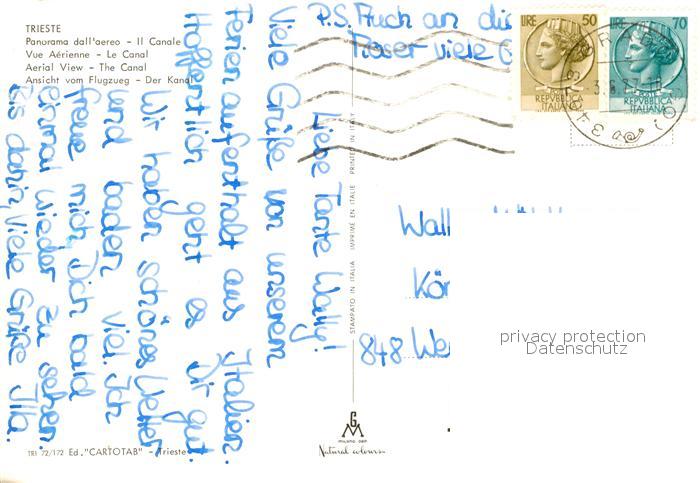 TRIESTE
Panorama dall'aereo - Il Canale
Vue Aérienne - Le Canal
Aerial View - The Canal
Ansicht vom Flugzeug - Der Kanal
P.S. Auch an die
Moser viele
Liebe Tante Wally!
Viele Grüße von unserem
Ferienaufenthalt aus Italien.
Hoffentlich geht es Dir gut.
Wir haben schönes Wetter
und baden viel. Ich
freue mich, Dich bald
einmal wieder zu sehen.
Bis dahin, viele Grüße Jlla.
STAMPATO IN ITALIA IMPRIMÉ EN ITALIE PRINTED IN ITALY
LIRE 50
REPVBBLICA
ITALIANA
LIRE 70
REPVBBLICA
ITALIANA
Wall
Kör
848 We
privacy protection
Datenschutz
GM
TRI 72/172 Ed. "CARTOTAB" - Trieste
Natural colours